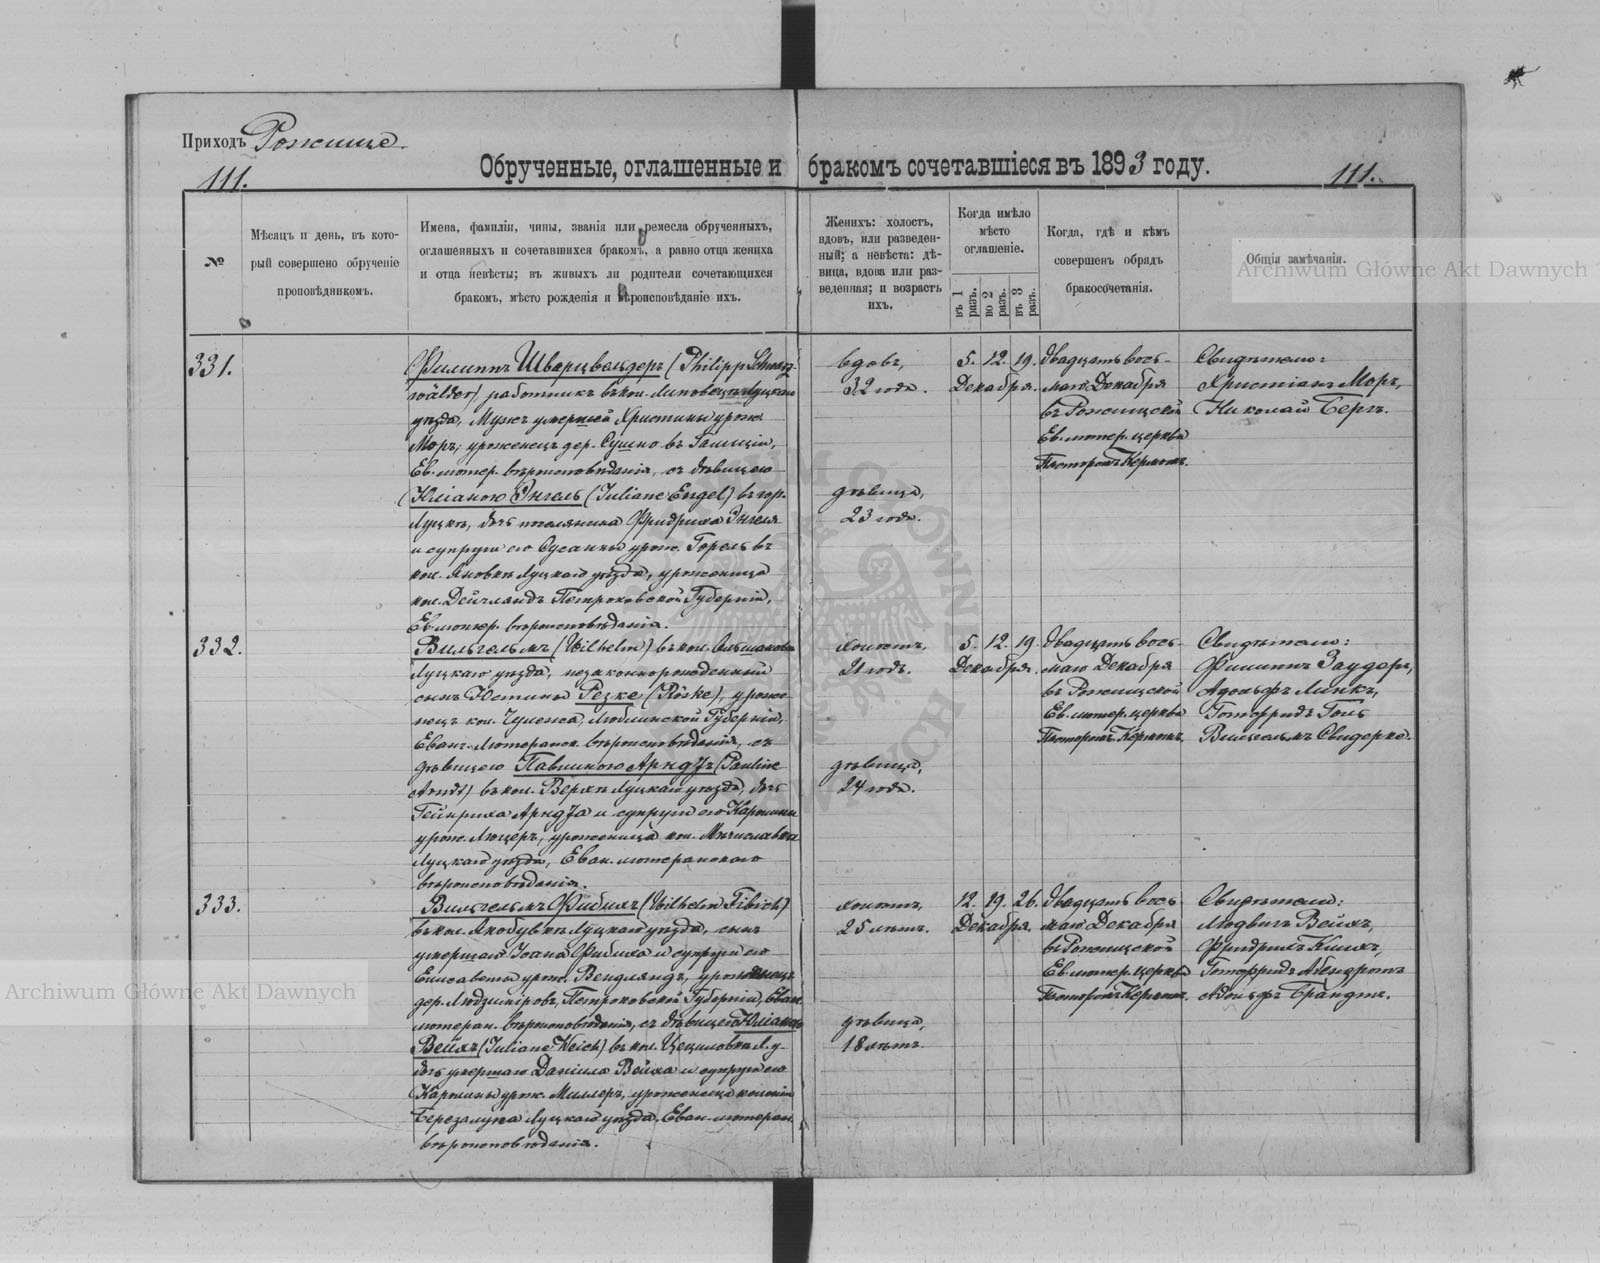 Приходъ Рожище.
Обрученные, оглашенные и бракомъ сочетавшіеся въ 1893 году.
111.
111.
№
Мѣсяцъ и день, въ кото-
рый совершено обрученіе
проповѣдникомъ.
Имена, фамиліи, чины, званія или ремесла обрученныхъ,
оглашенныхъ и сочетавшихся бракомъ, а равно отца жениха
и отца невѣсты; въ живыхъ ли родители сочетающихся
бракомъ, мѣсто рожденія и вѣроисповѣданіе ихъ.
Женихъ: холостъ,
вдовъ, или разведен-
ный; а невѣста: дѣ-
вица, вдова или раз-
веденная; и возрастъ
ихъ.
Когда имѣло
мѣсто
оглашеніе.
въ 1 разъ.
во 2 разъ.
въ 3 разъ.
Когда, гдѣ и кѣмъ
совершенъ обрядъ
бракосочетанія.
Общія замѣчанія.
331.
Филиппъ Шварцвельдеръ (Philipp Schwarz-
wälder) работникъ въ кол. Луцкаго
уѣзда, Мужъ умершей Христины урож.
Моръ, уроженецъ дер. Сушно въ Галиціи,
Ев. лютер. вѣроисповѣданія, съ дѣвицею
Юліаною Энгель (Juliane Engel) въ гор.
Луцкѣ, дочь поселянина Фридриха Энгеля
и супруги его Сусанны урож. Горель въ
кол. Яновкѣ Луцкаго уѣзда, уроженица
кол. Дейчляндъ Петроковской Губерніи,
Ев. лютер. вѣроисповѣданія.
вдовъ,
32 года.
дѣвица,
23 года.
5. 12. 19.
Декабря.
Двадцать вось-
маго Декабря
въ Рожищской
Ев. лютер. церкви
Пасторомъ Кермомъ.
Свидѣтели:
Христіанъ Моръ,
Николай Бергъ.
332.
Вильгельмъ (Wilhelm) въ кол.
Луцкаго уѣзда, незаконнорожденный
сынъ Юстины Резке (Röske), уроже-
нецъ кол. Люблинской Губерніи,
Еванг. Лютеранск. вѣроисповѣданія, съ
дѣвицею Павлиною Арндтъ (Pauline
Arndt) въ кол. Верхъ Луцкаго уѣзда, дочь
Гейнриха Арндта и супруги его Каролины
урож. Люцеръ, уроженица кол. Мечиславка
Луцкаго уѣзда, Еван. лютеранскаго
вѣроисповѣданія.
холостъ,
21 годъ.
дѣвица,
24 года.
5. 12. 19.
Декабря.
Двадцать вось-
маго Декабря
въ Рожищской
Ев. лютер. церкви
Пасторомъ Кермомъ.
Свидѣтели:
Филиппъ Заудеръ,
Адольфъ Линкъ,
Готфридъ Гонь
Вильгельмъ Свидерке.
333.
Вильгельмъ Фибихъ (Wilhelm Fibich)
въ кол. Якобувкѣ Луцкаго уѣзда, сынъ
умершаго Іоана Фибиха и супруги его
Елисаветы урож. Вендляндъ, уроженецъ
дер. Людзиміровъ, Петроковской Губерніи, Еван.
лютеран. вѣроисповѣданія, съ дѣвицею Юліаною
Вейхъ (Juliane Weich) въ кол. Цециловкѣ Л. у.
дочь умершаго Даніила Вейха и супруги его
Каролины урож. Миллеръ, уроженица колоніи
Березалупа Луцкаго уѣзда, Еван. лютеран.
вѣроисповѣданія.
холостъ,
25 лѣтъ.
дѣвица,
18 лѣтъ.
12. 19. 26.
Декабря.
Двадцать вось-
маго Декабря
въ Рожищской
Ев. лютер. церкви
Пасторомъ Кермомъ.
Свидѣтели:
Людвигъ Вейхъ,
Фридрихъ
Готфридъ Абендротъ
Адольфъ Брандтъ.
Archiwum Główne Akt Dawnych
Archiwum Główne Akt Dawnych